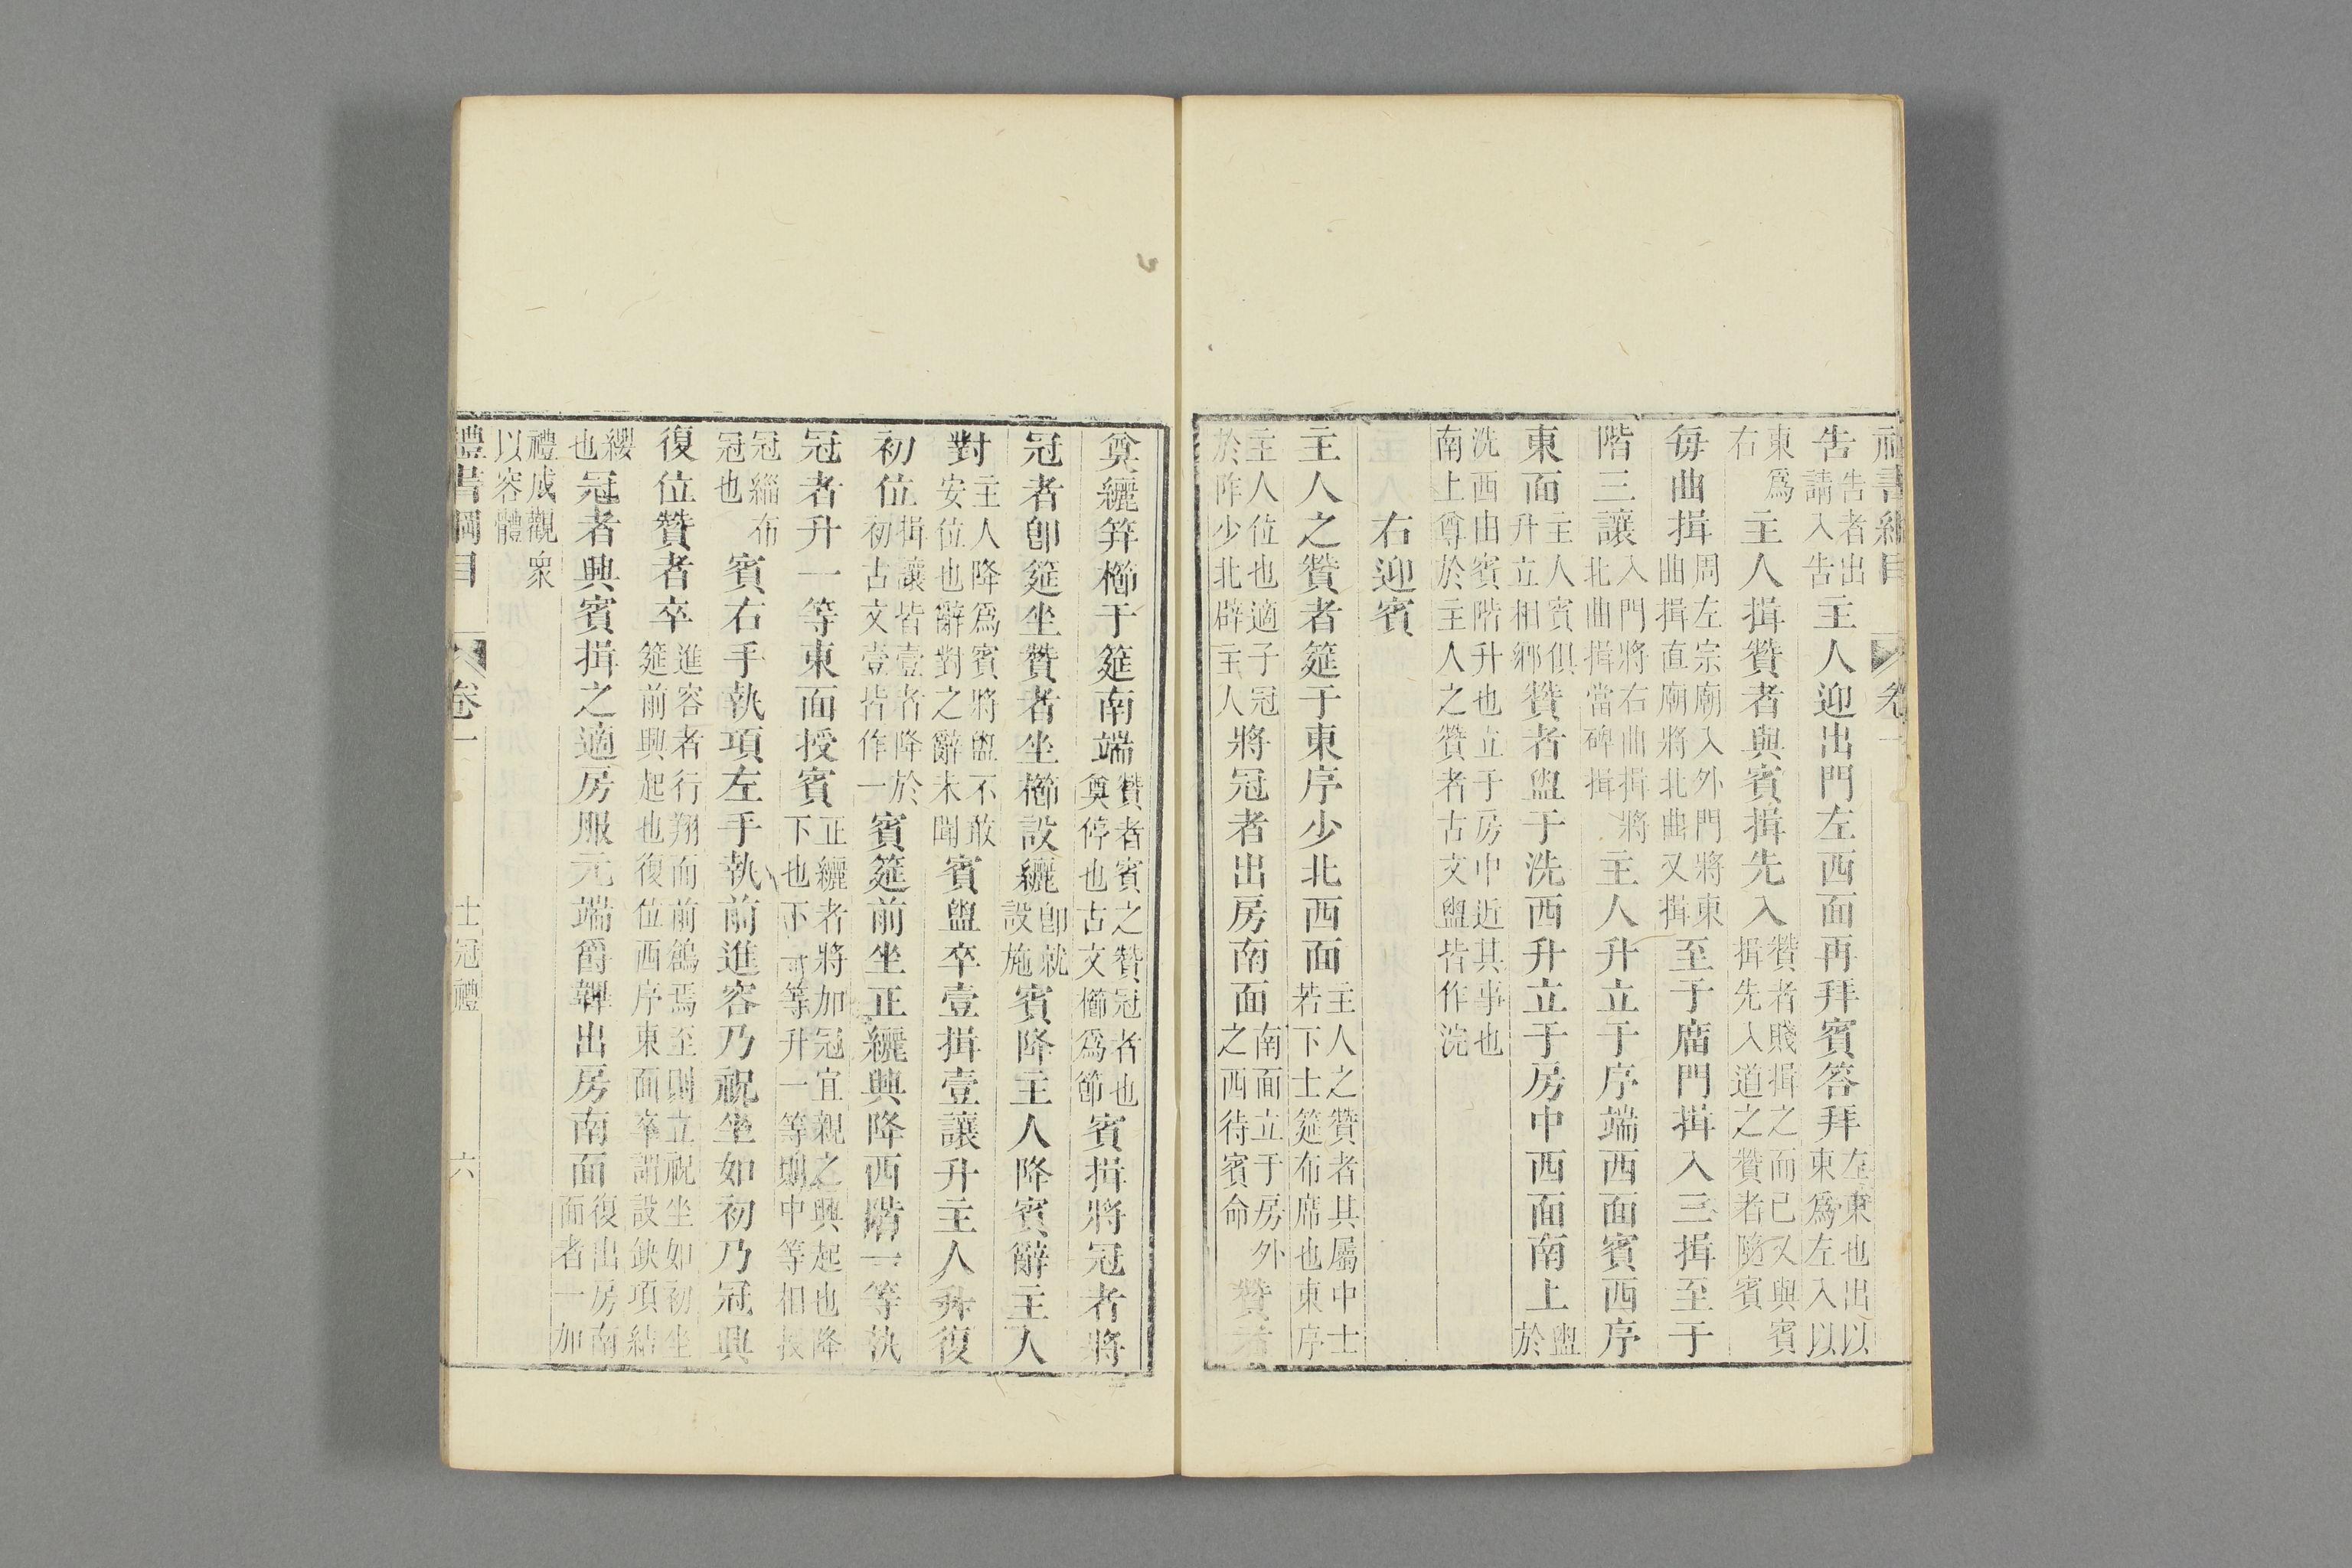 禮書綱目 卷一
告告者出請入告主人迎出門左西面再拜賓答拜左東也出以東爲左入以
東爲右主人揖贊者與賓揖先入贊者賤揖之而已又與賓揖先入道之贊者隨賓
每曲揖周左宗廟入外門將東曲揖直廟將北曲又揖至于廟門揖入三揖至于
階三讓入門將右曲揖將北曲揖當碑揖主人升立于序端西面賓西序
東面主人賓俱升立相鄉贊者盥于洗西升立于房中西面南上盥於
洗西由賓階升也立于房中近其事也南上尊於主人之贊者古文盥皆作浣
右迎賓
主人之贊者筵于東序少北西面主人之贊者其屬中士若下士筵布席也東序
主人位也適子冠於阼少北辟主人將冠者出房南面南面立于房外之西待賓命贊者
奠纚笄櫛于筵南端贊者賓之贊冠者也奠停也古文櫛爲節賓揖將冠者將
冠者卽筵坐贊者坐櫛設纚卽就設施賓降主人降賓辭主人
對主人降爲賓將盥不敢安位也辭對之辭未聞賓盥卒壹揖壹讓升主人升復
初位揖讓皆壹者降於初古文壹皆作一賓筵前坐正纚興降西階一等執
冠者升一等東面授賓正纚者將加冠宜親之興起也降下也下一等升一等則中等相授
冠緇布冠也賓右手執項左手執前進容乃祝坐如初乃冠興
復位贊者卒進容者行翔而前鶬焉至則立祝坐如初坐筵前興起也復位西序東面卒謂設缺項結
纓也冠者興賓揖之適房服元端爵韠出房南面復出房南面者一加
禮成觀衆以容體
禮書綱目 卷一 士冠禮 六